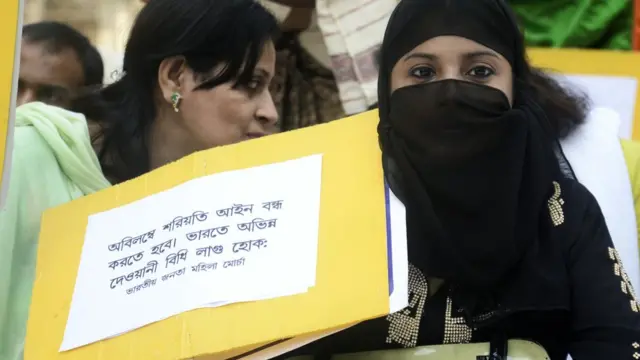 অবিলম্বে শরিয়তি আইন বন্ধ
করতে হবে। ভারতে অভিন্ন
দেওয়ানী বিধি লাগু হোক:
ভারতীয় জনতা মহিলা মোর্চা